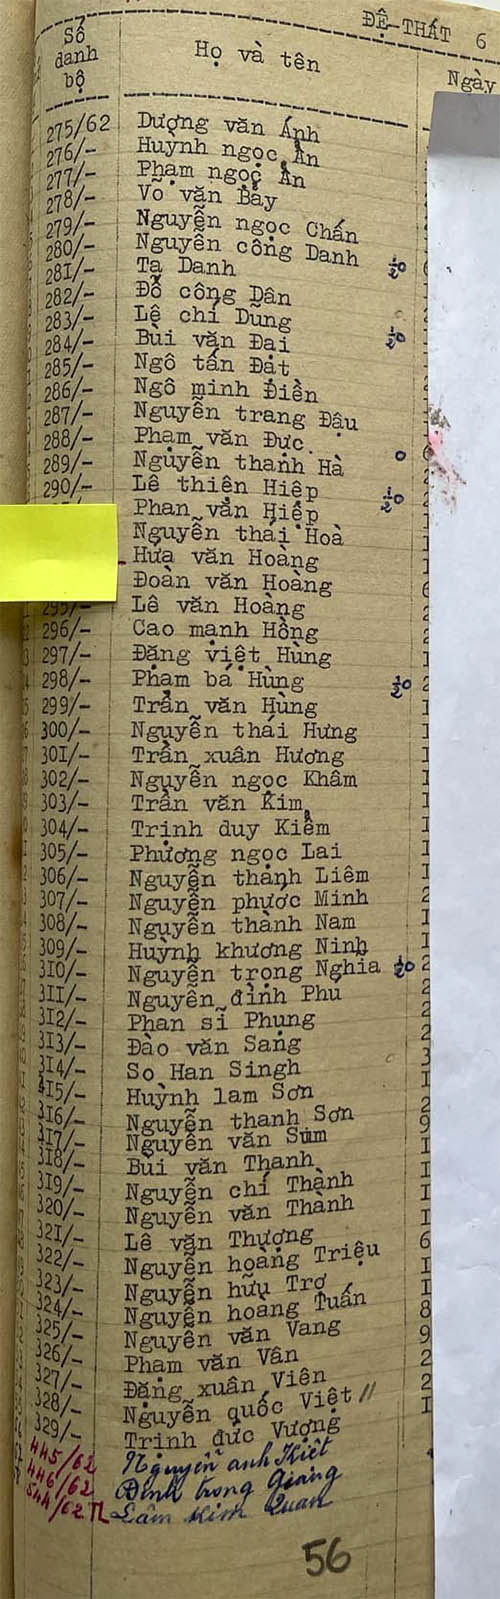 ĐỆ-THẤT 6
Số danh bộ Họ và tên Ngày
275/62 Dương văn Ánh
276/- Huỳnh ngọc Ẩn
277/- Phạm ngọc Ẩn
278/- Võ văn Bảy
279/- Nguyễn ngọc Chấn
280/- Nguyễn công Danh
281/- Tạ Danh
282/- Đỗ công Dân
283/- Lê chí Dũng
284/- Bùi văn Đại
285/- Ngô tấn Đạt
286/- Ngô minh Điền
287/- Nguyễn trang Đậu
288/- Phạm văn Đực
289/- Nguyễn thanh Hà
290/- Lê thiện Hiệp
Phan văn Hiệp
Nguyễn thái Hoà
Hứa văn Hoàng
Đoàn văn Hoàng
295/- Lê văn Hoàng
296/- Cao mạnh Hồng
297/- Đặng việt Hùng
298/- Phạm bá Hùng
299/- Trần văn Hùng
300/- Nguyễn thái Hưng
301/- Trần xuân Hương
302/- Nguyễn ngọc Khâm
303/- Trần văn Kim
304/- Trịnh duy Kiểm
305/- Phương ngọc Lai
306/- Nguyễn thành Liêm
307/- Nguyễn phước Minh
308/- Nguyễn thành Nam
309/- Huỳnh khương Ninh
310/- Nguyễn trọng Nghĩa
311/- Nguyễn đình Phú
312/- Phan sĩ Phụng
313/- Đào văn Sang
314/- So Han Singh
315/- Huỳnh lam Sơn
316/- Nguyễn thanh Sơn
317/- Nguyễn văn Sum
318/- Bùi văn Thanh
319/- Nguyễn chí Thành
320/- Nguyễn văn Thành
321/- Lê văn Thượng
322/- Nguyễn hoàng Triệu
323/- Nguyễn hữu Trợ
324/- Nguyễn hoàng Tuấn
325/- Nguyễn văn Vang
326/- Phạm văn Vân
327/- Đặng xuân Viên
328/- Nguyễn quốc Việt //
329/- Trịnh đức Vượng
445/62 Nguyễn anh Kiệt
446/62 Đinh trọng Giảng
544/62 TL Lâm Kim Quan
56